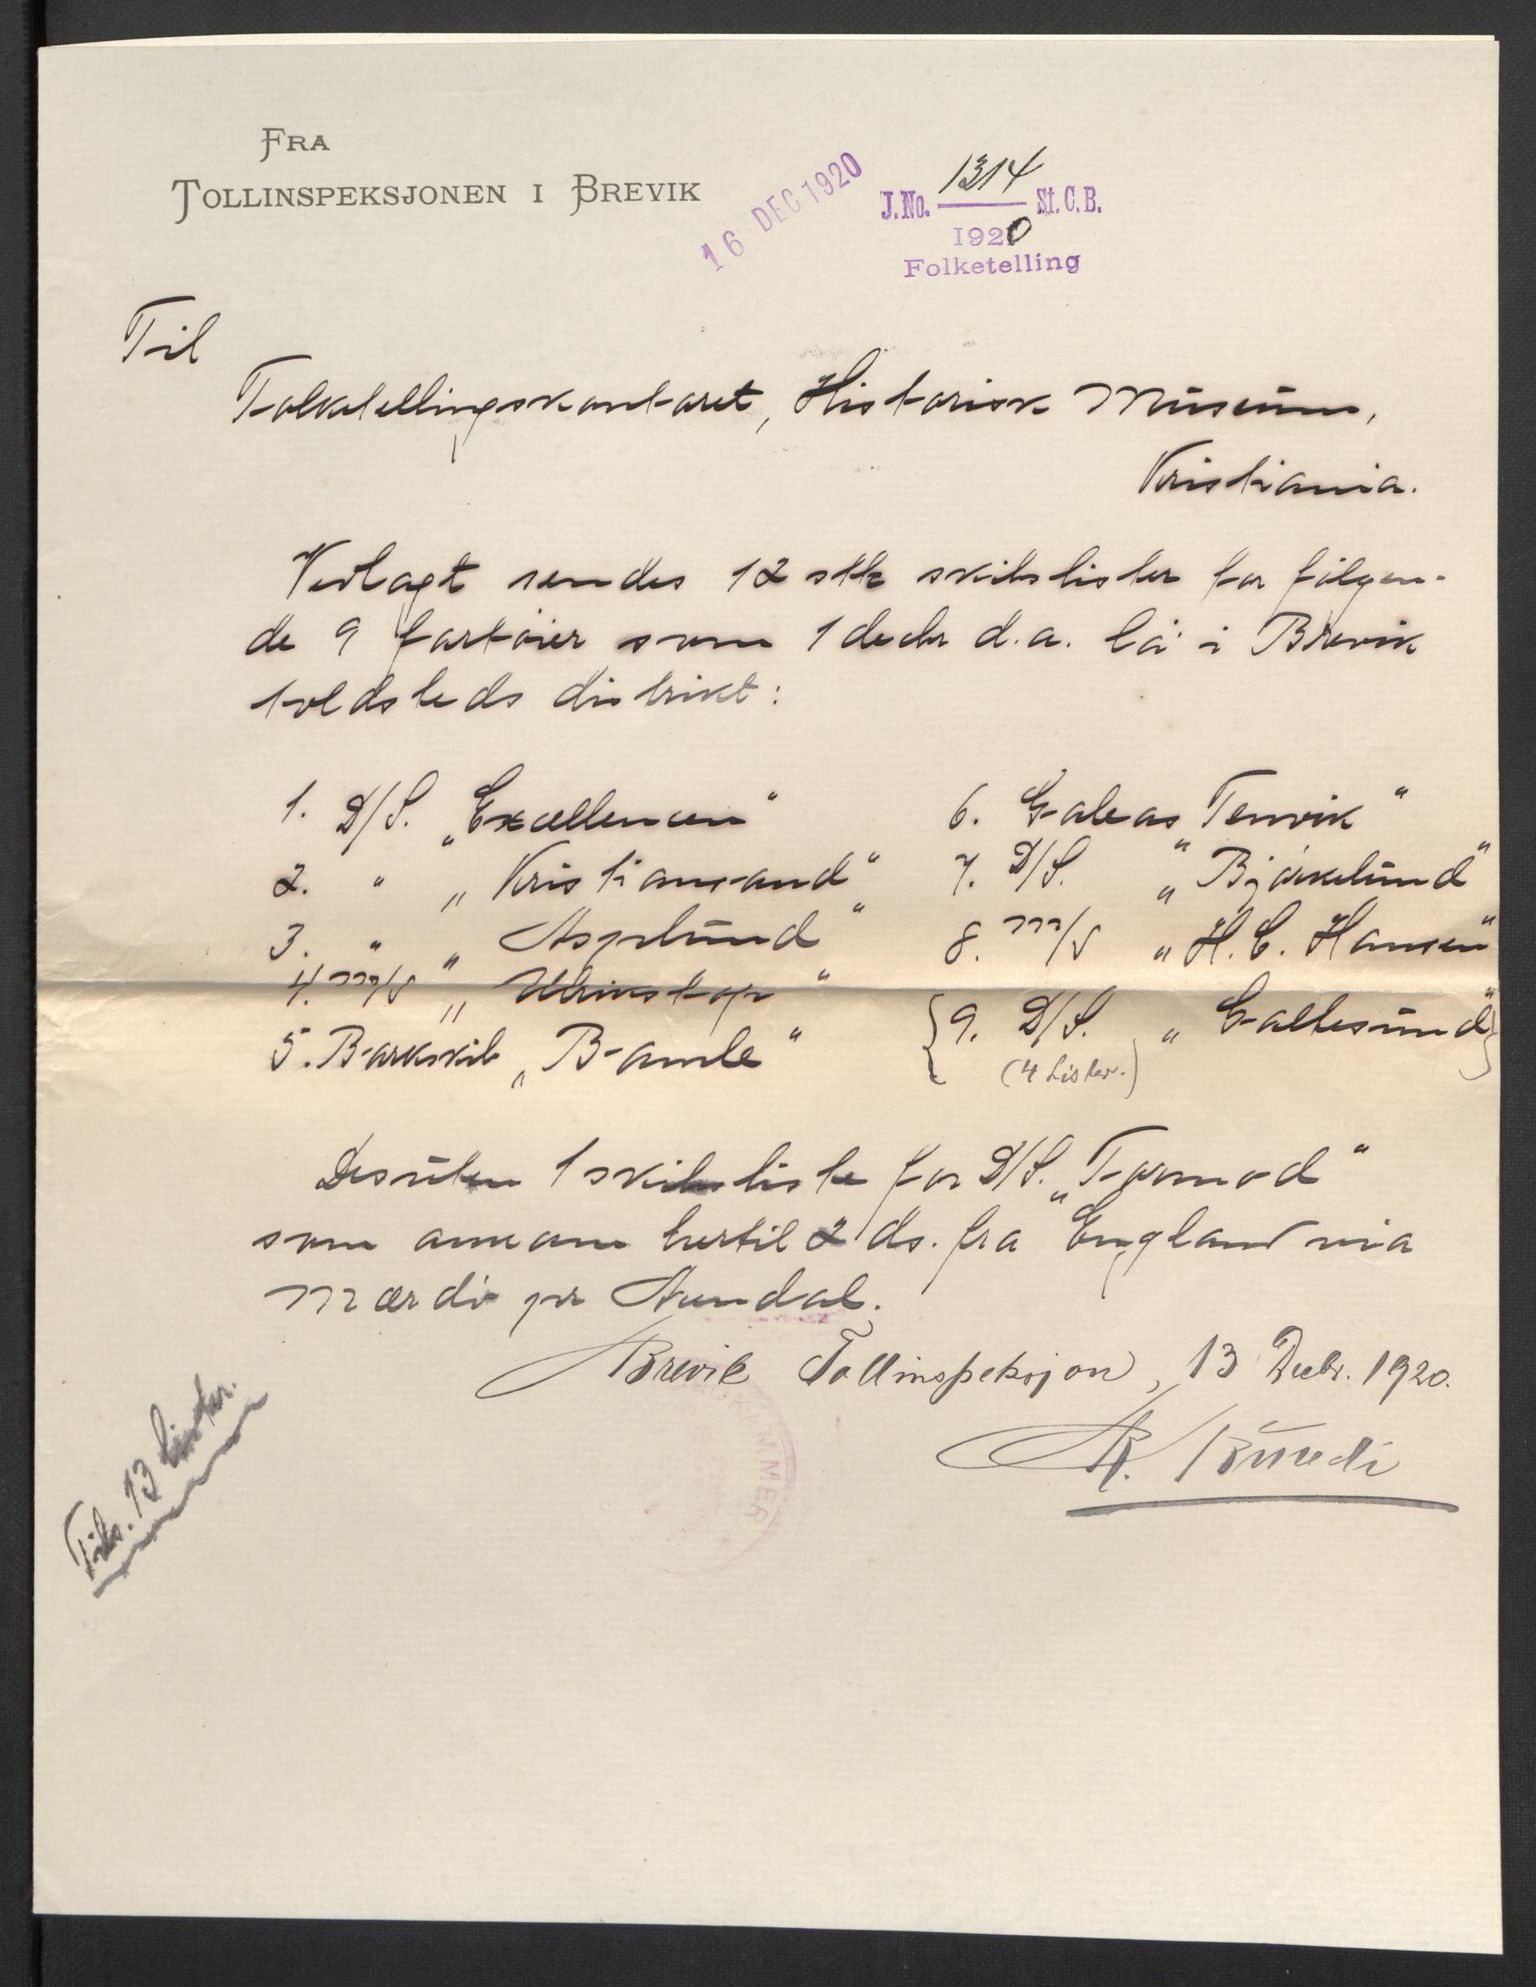 FRA
TOLLINSPEKSJONEN I BREVIK
16 DEC 1920
J.No. 1314 St.C.B.
1920
Folketelling
Til
Folketellingskontoret, Historisk Museum,
Kristiania.
Vedlagt sendes 12 stk skibslister for følgen-
de 9 fartøier som 1 decbr d.a. lå i Brevik
toldsteds distrikt:
1. D/S. „Excellencen"
2. " „Kristiansand"
3. " „Asplund"
4. M/S „Ulrikstop"
5. Barkskib „Bamle"
6. Galeas „Tenvik"
7. D/S. „Bjørkelund"
8. M/S „H.C. Hansen"
{9. D/S. „Galtesund"}
(4 Lister.)
Desuten 1 skibsliste for D/S. „Tormod"
som ankom hertil 2 ds. fra England via
Mærdø pr Arendal.
Brevik Tollinspeksjon, 13 Decbr. 1920.
Tils. 13 lister.